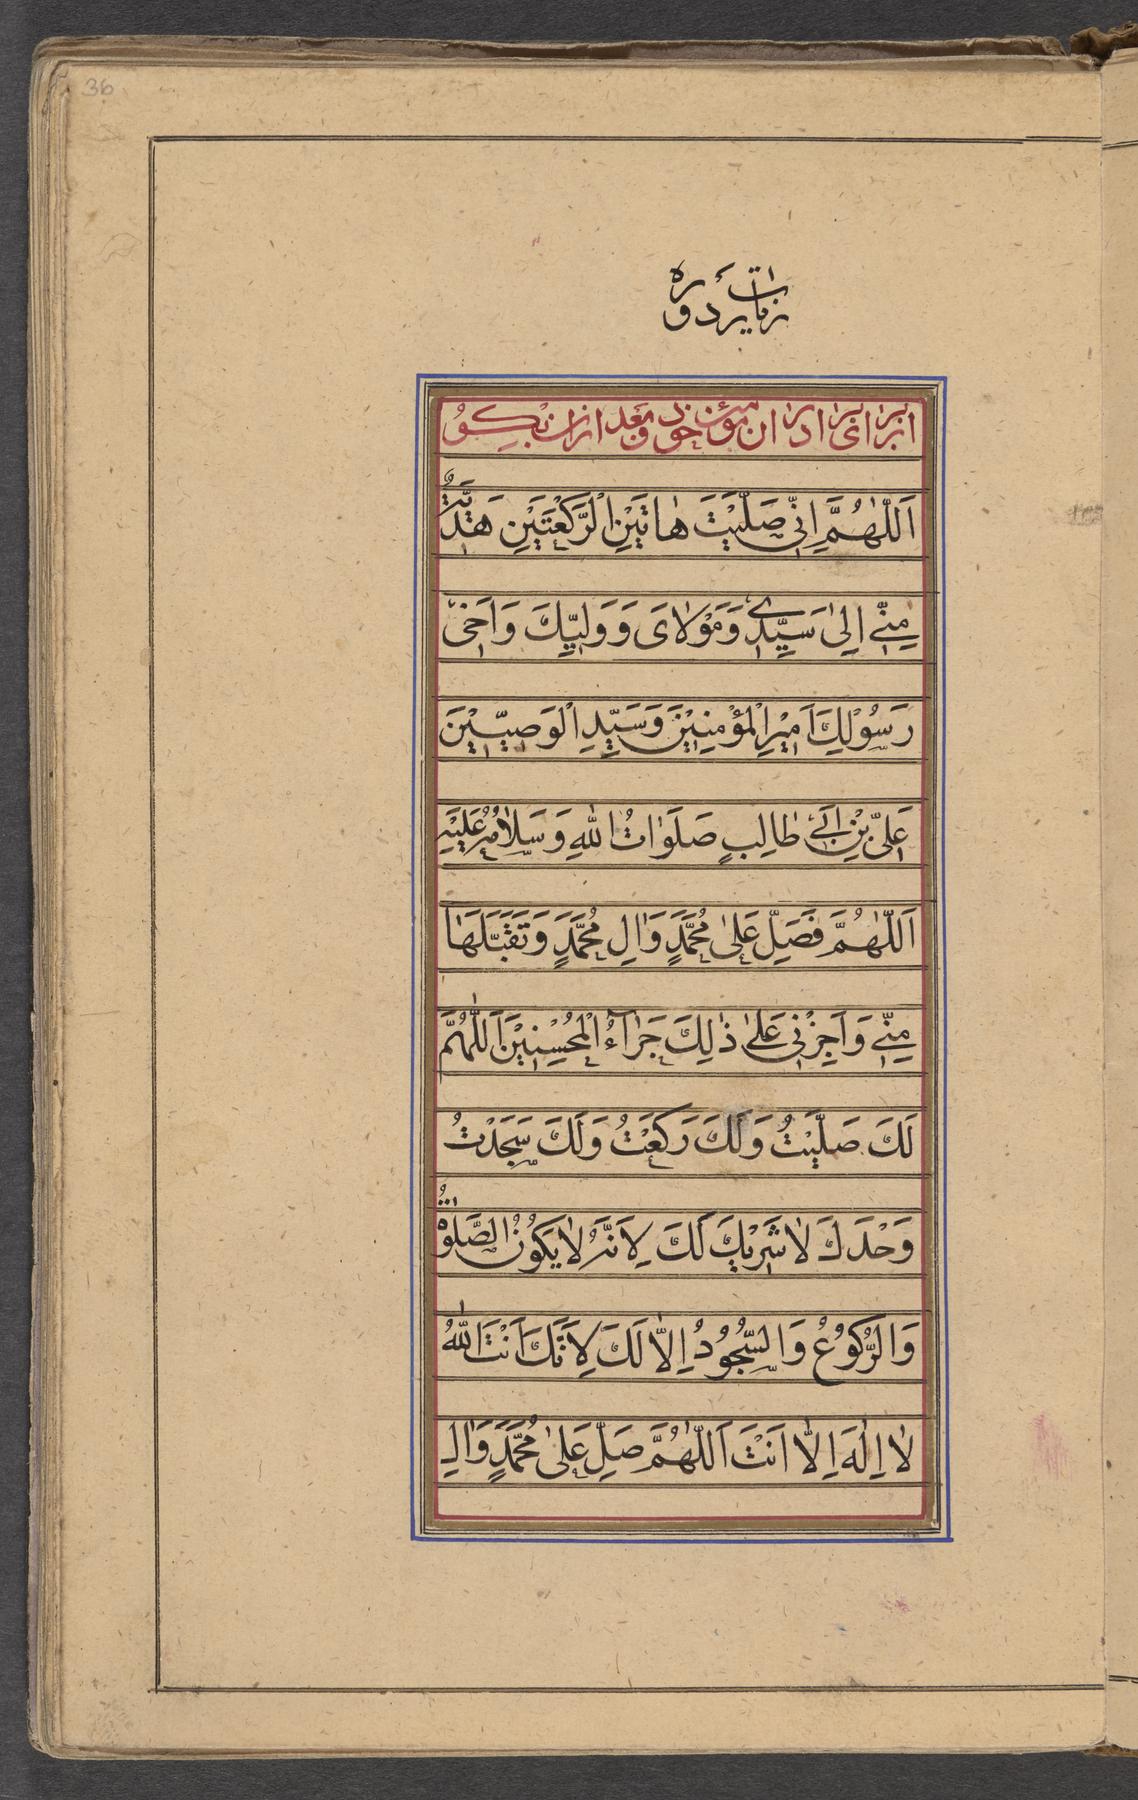 36
زیارت
از برای برادران مؤمن خود و بعد ازان بگو
اَللّٰهُمَّ اِنّیِ صَلَّیْتُ هٰاتَیْنِ الْرَّکْعَتَیْنِ هَدِیَّةً
مِنّیِ اِلیٰ سَیِّدِی وَمَوْلٰایَ وَوَلِیِّكَ وَاَخیِ
رَسُوْلِكَ اَمِیْرِالْمُؤْمِنِیْنَ وَسَیِّدِ الْوَصِیّیْنَ
عَلِیِّ بْنِ اَبیِ طٰالِبٍ صَلَوٰاتُ اللّٰهِ وَسَلٰامُهُ عَلَیْهِ
اَللّٰهُمَّ فَصَلِّ عَلیٰ مُحَمَّدٍ وَاٰلِ مُحَمَّدٍ وَتَقَبَّلَهٰا
مِنّیِ وَاَجِزْنِی عَلیٰ ذٰلِكَ جَزٰآءَ الْمُحْسِنِیْنَ اَللّٰهُمَّ
لَكَ صَلَّیْتُ وَلَكَ رَکَعْتُ وَلَكَ سَجَدْتُ
وَحْدَكَ لٰا شَرِیْكَ لَكَ لِاَنَّهُ لٰا یَکُوْنُ الصَّلٰوةُ
وَالرُّکُوْعُ وَالسُّجُوْدُ اِلّٰا لَكَ لِاَنَّكَ اَنْتَ اللّٰهُ
لٰا اِلٰهَ اِلّٰا اَنْتَ اَللّٰهُمَّ صَلِّ عَلیٰ مُحَمَّدٍ وَاٰلِ